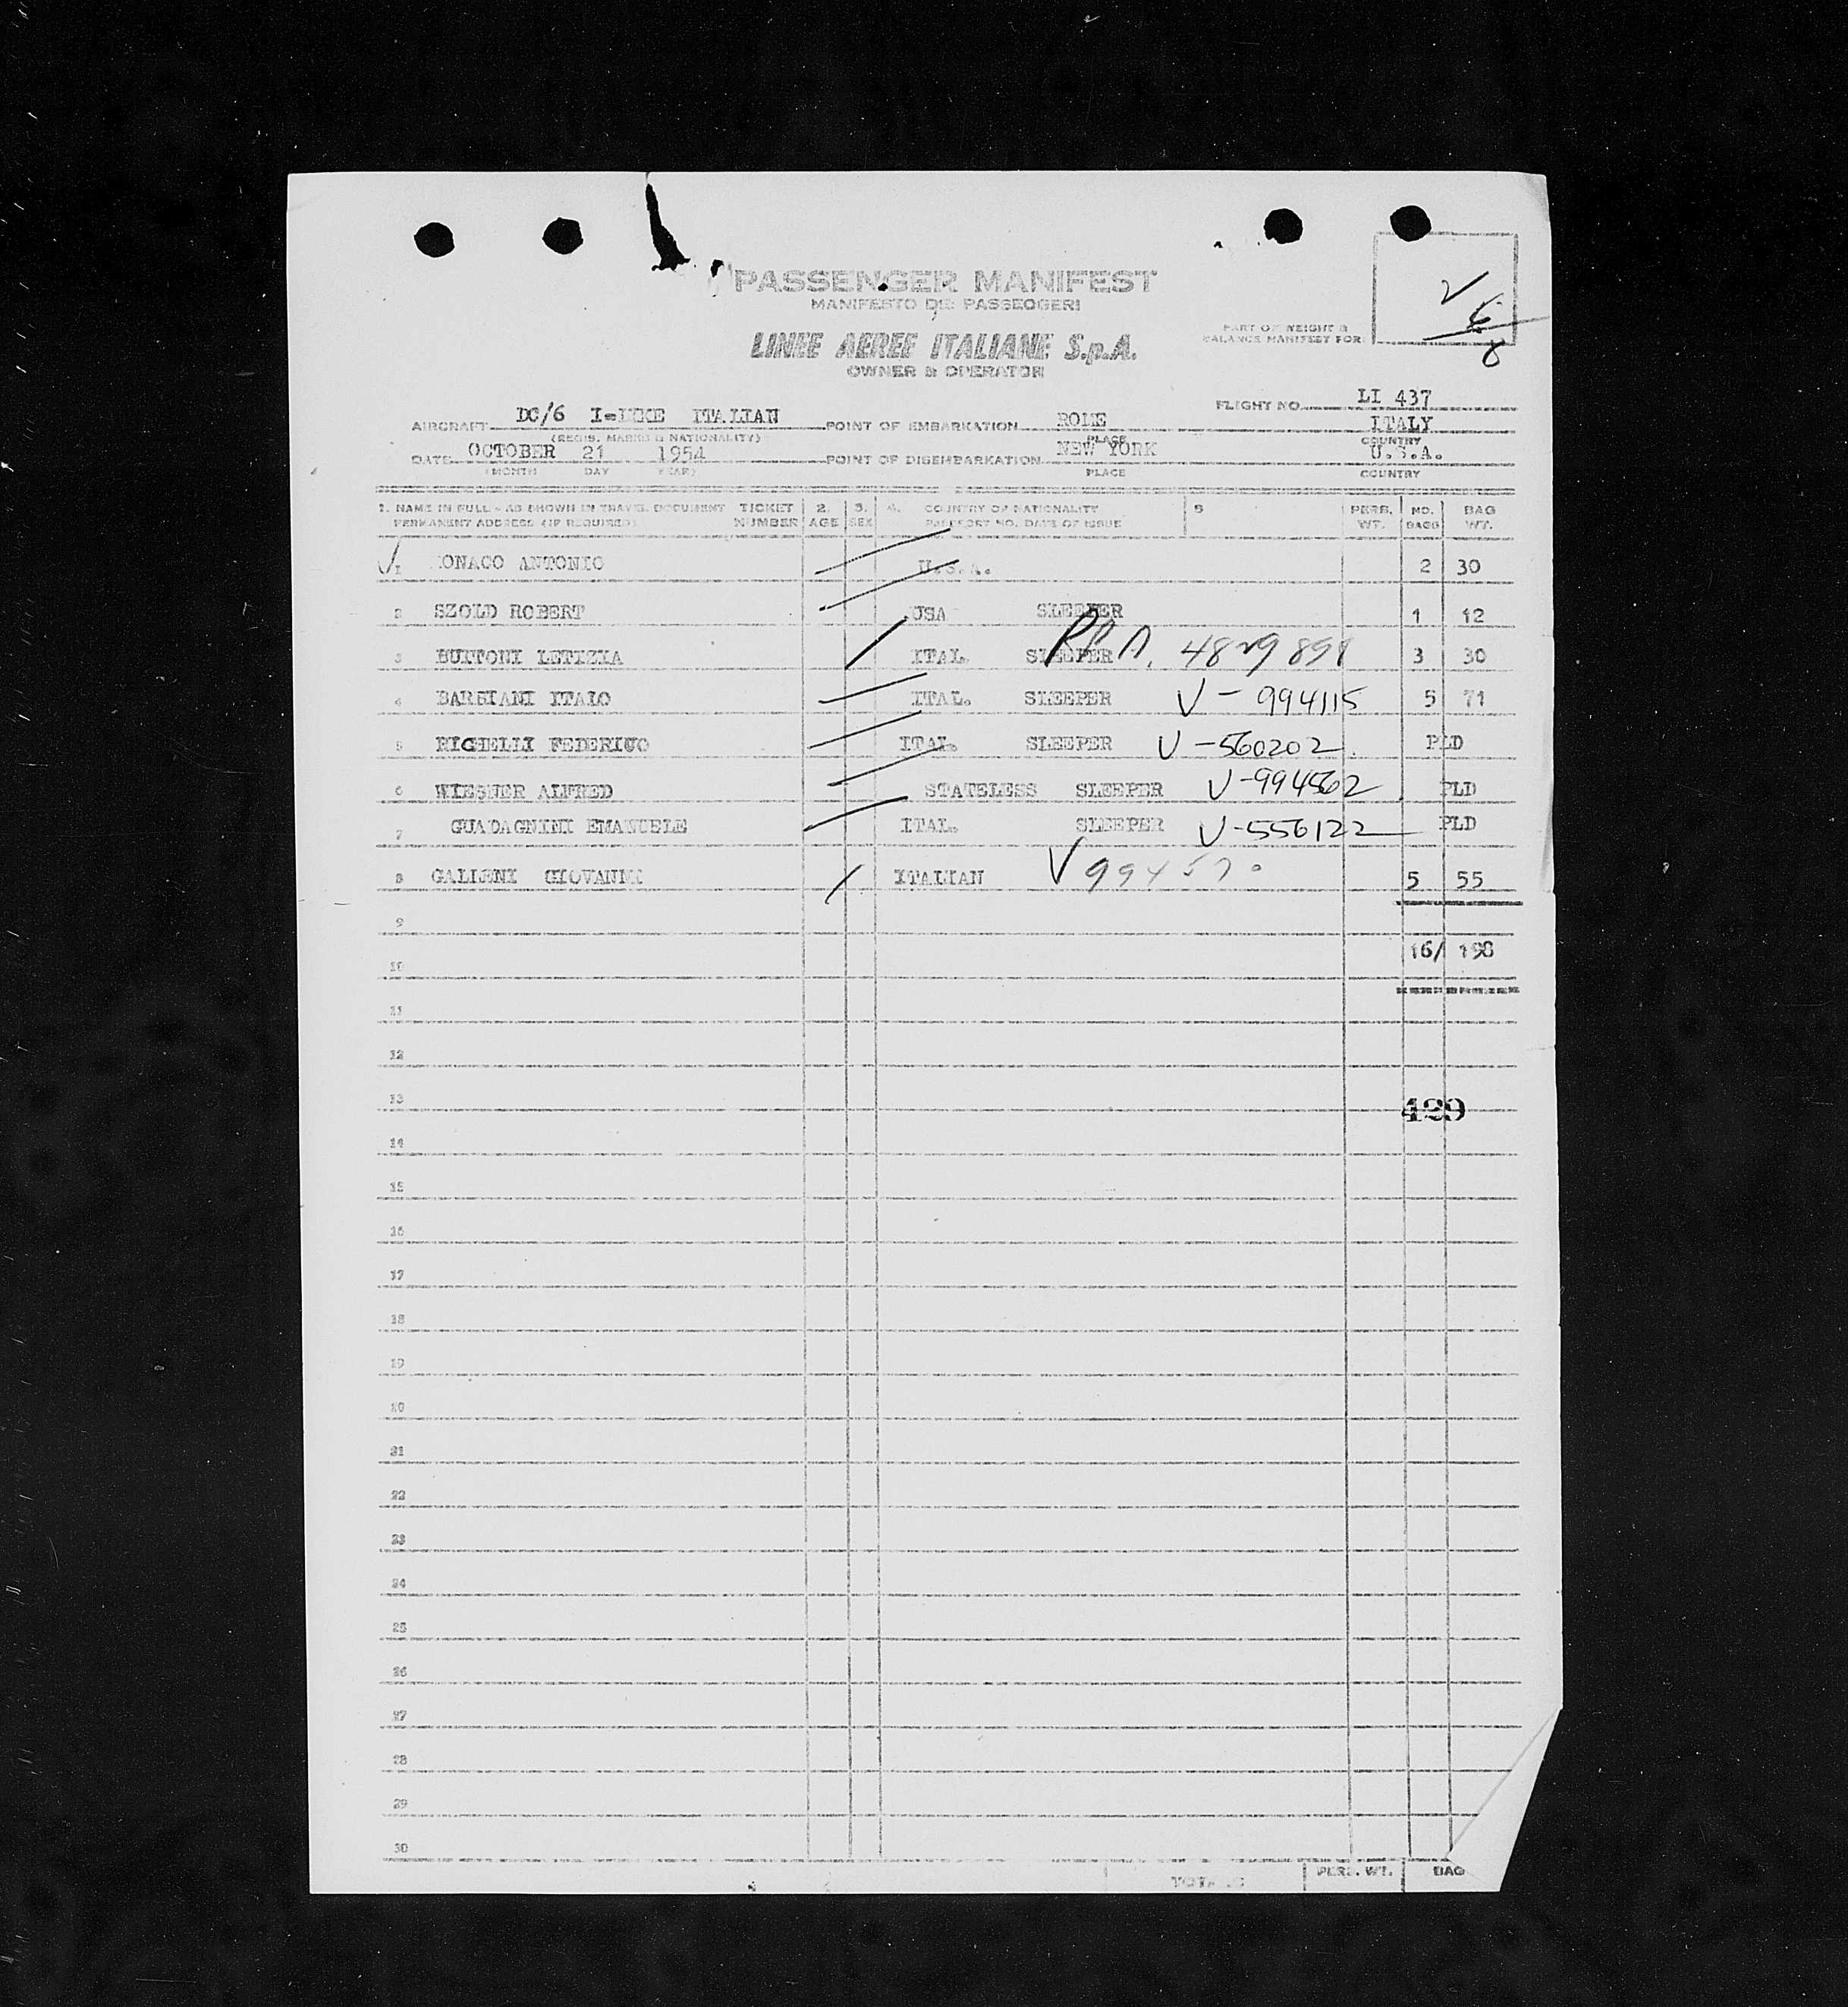 PASSENGER MANIFEST
MANIFESTO DEI PASSEGGERI
LINEE AEREE ITALIANE S.p.A.
OWNER & OPERATOR
PART OF WEIGHT &
BALANCE MANIFEST FOR
2
6
8
FLIGHT NO. LI 437
AIRCRAFT DC/6 ITALIAN POINT OF EMBARKATION ROME ITALY
(REGIS. MARKS & NATIONALITY) PLACE COUNTRY
DATE OCTOBER 21 1954 POINT OF DISEMBARKATION NEW YORK U.S.A.
(MONTH DAY YEAR) PLACE COUNTRY
1. NAME IN FULL - AS SHOWN IN TRAVEL DOCUMENT TICKET 2. 3. 4. COUNTRY OF NATIONALITY 5 PERS. NO. BAG
PERMANENT ADDRESS (IF REQUIRED) NUMBER AGE SEX PASSPORT NO. DATE OF ISSUE WT. BAGS WT.
1 MONACO ANTONIO U.S.A. 2 30
2 SZOLD ROBERT USA SLEEPER 1 12
3 BUITONI LETIZIA ITAL. SLEEPER 3 30
4 BARSIANI ITALO ITAL. SLEEPER V-994115 5 71
5 RIGHELLI FEDERICO ITAL. SLEEPER V-560202 PLD
6 WIESNER ALFRED STATELESS SLEEPER V-994562 PLD
7 GUADAGNINI EMANUELE ITAL. SLEEPER V-556122 PLD
8 GALLENI GIOVANNI ITALIAN 5 55
9
16/ 198
10
11
12
13
429
14
15
16
17
18
19
20
21
22
23
24
25
26
27
28
29
30
TOTALS PERS. WT. BAG